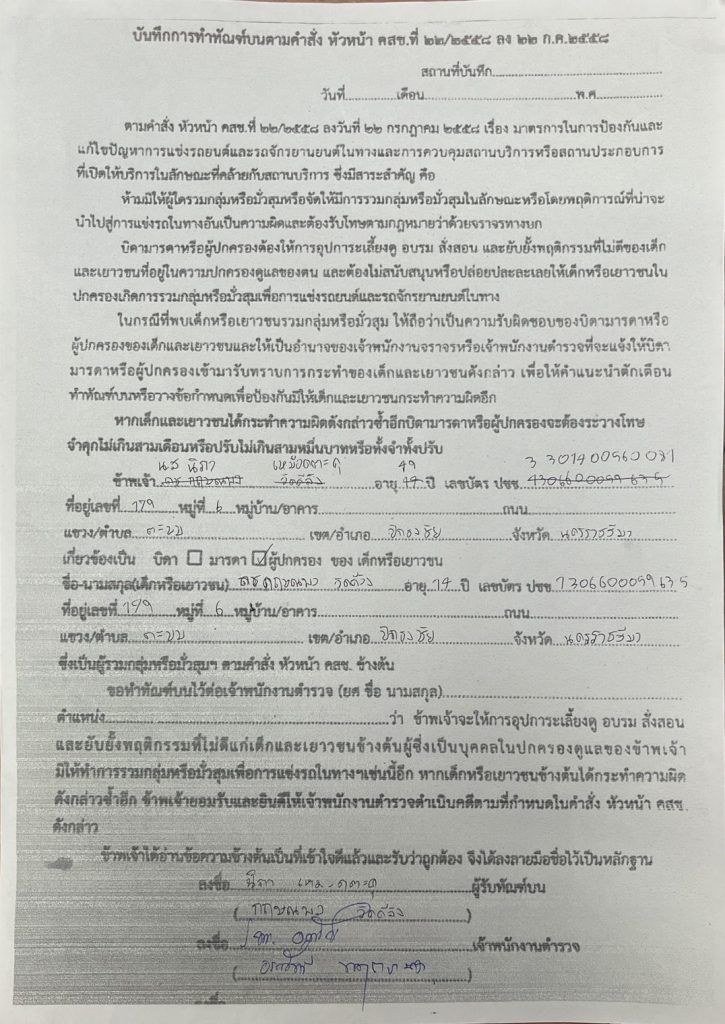 บันทึกการทำทัณฑ์บนตามคำสั่ง หัวหน้า คสช.ที่ ๒๒/๒๕๕๘ ลง ๒๒ ก.ค.๒๕๕๘
สถานที่บันทึก
วันที่ เดือน พ.ศ.
ตามคำสั่ง หัวหน้า คสช.ที่ ๒๒/๒๕๕๘ ลงวันที่ ๒๒ กรกฎาคม ๒๕๕๘ เรื่อง มาตรการในการป้องกันและ
แก้ไขปัญหาการแข่งรถยนต์และรถจักรยานยนต์ในทางและการควบคุมสถานบริการหรือสถานประกอบการ
ที่เปิดให้บริการในลักษณะที่คล้ายกับสถานบริการ ซึ่งมีสาระสำคัญ คือ
ห้ามมิให้ผู้ใดรวมกลุ่มหรือมั่วสุมหรือจัดให้มีการรวมกลุ่มหรือมั่วสุมในลักษณะหรือโดยพฤติการณ์ที่น่าจะ
นำไปสู่การแข่งรถในทางอันเป็นความผิดและต้องรับโทษตามกฎหมายว่าด้วยจราจรทางบก
บิดามารดาหรือผู้ปกครองต้องให้การอุปการะเลี้ยงดู อบรม สั่งสอน และยับยั้งพฤติกรรมที่ไม่ดีของเด็ก
และเยาวชนที่อยู่ในความปกครองดูแลของตน และต้องไม่สนับสนุนหรือปล่อยปละละเลยให้เด็กหรือเยาวชนใน
ปกครองเกิดการรวมกลุ่มหรือมั่วสุมเพื่อการแข่งรถยนต์และรถจักรยานยนต์ในทาง
ในกรณีที่พบเด็กหรือเยาวชนรวมกลุ่มหรือมั่วสุม ให้ถือว่าเป็นความรับผิดชอบของบิดามารดาหรือ
ผู้ปกครองของเด็กและเยาวชนและให้เป็นอำนาจของเจ้าพนักงานจราจรหรือเจ้าพนักงานตำรวจที่จะแจ้งให้บิดา
มารดาหรือผู้ปกครองเข้ามารับทราบการกระทำของเด็กและเยาวชนดังกล่าว เพื่อให้คำแนะนำตักเตือน
ทำทัณฑ์บนหรือวางข้อกำหนดเพื่อป้องกันมิให้เด็กและเยาวชนกระทำความผิดอีก
หากเด็กและเยาวชนได้กระทำความผิดดังกล่าวซ้ำอีกบิดามารดาหรือผู้ปกครองจะต้องระวางโทษ
จำคุกไม่เกินสามเดือนหรือปรับไม่เกินสามหมื่นบาทหรือทั้งจำทั้งปรับ
นส นิภา 49
ข้าพเจ้า อายุ ปี เลขบัตร ปชช.
ที่อยู่เลขที่ 179 หมู่ที่ 6 หมู่บ้าน/อาคาร ถนน
แขวง/ตำบล ตะขบ เขต/อำเภอ ปักธงชัย จังหวัด นครราชสีมา
เกี่ยวข้องเป็น บิดา มารดา ผู้ปกครอง ของ เด็กหรือเยาวชน
ชื่อ-นามสกุล(เด็กหรือเยาวชน) อายุ 17 ปี เลขบัตร ปชช.
ที่อยู่เลขที่ 179 หมู่ที่ 6 หมู่บ้าน/อาคาร ถนน
แขวง/ตำบล ตะขบ เขต/อำเภอ ปักธงชัย จังหวัด นครราชสีมา
ซึ่งเป็นผู้รวมกลุ่มหรือมั่วสุมฯ ตามคำสั่ง หัวหน้า คสช. ข้างต้น
ขอทำทัณฑ์บนไว้ต่อเจ้าพนักงานตำรวจ (ยศ ชื่อ นามสกุล)
ตำแหน่ง ว่า ข้าพเจ้าจะให้การอุปการะเลี้ยงดู อบรม สั่งสอน
และยับยั้งพฤติกรรมที่ไม่ดีแก่เด็กและเยาวชนข้างต้นผู้ซึ่งเป็นบุคคลในปกครองดูแลของข้าพเจ้า
มิให้ทำการรวมกลุ่มหรือมั่วสุมเพื่อการแข่งรถในทางฯเช่นนี้อีก หากเด็กหรือเยาวชนข้างต้นได้กระทำความผิด
ดังกล่าวซ้ำอีก ข้าพเจ้ายอมรับและยินดีให้เจ้าพนักงานตำรวจดำเนินคดีตามที่กำหนดในคำสั่ง หัวหน้า คสช.
ดังกล่าว
ข้าพเจ้าได้อ่านข้อความข้างต้นเป็นที่เข้าใจดีแล้วและรับว่าถูกต้อง จึงได้ลงลายมือชื่อไว้เป็นหลักฐาน
ลงชื่อ นิภา ผู้รับทัณฑ์บน
ลงชื่อ เจ้าพนักงานตำรวจ